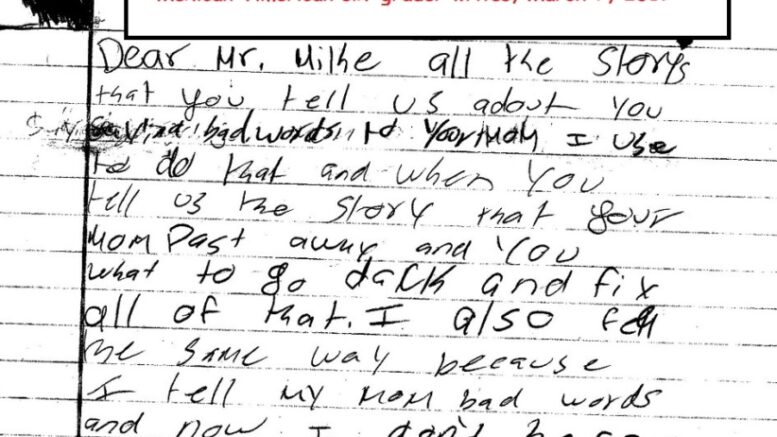 Dear Mr. Milke all the storys
that you tell us adout you
saying bad words to your Mom I use
to do that and when you
tell us the story that your
Mom Past away and you
what to go dack and fix
all of that. I also fell
the same way because
I tell my Mom bad words
and now I don't